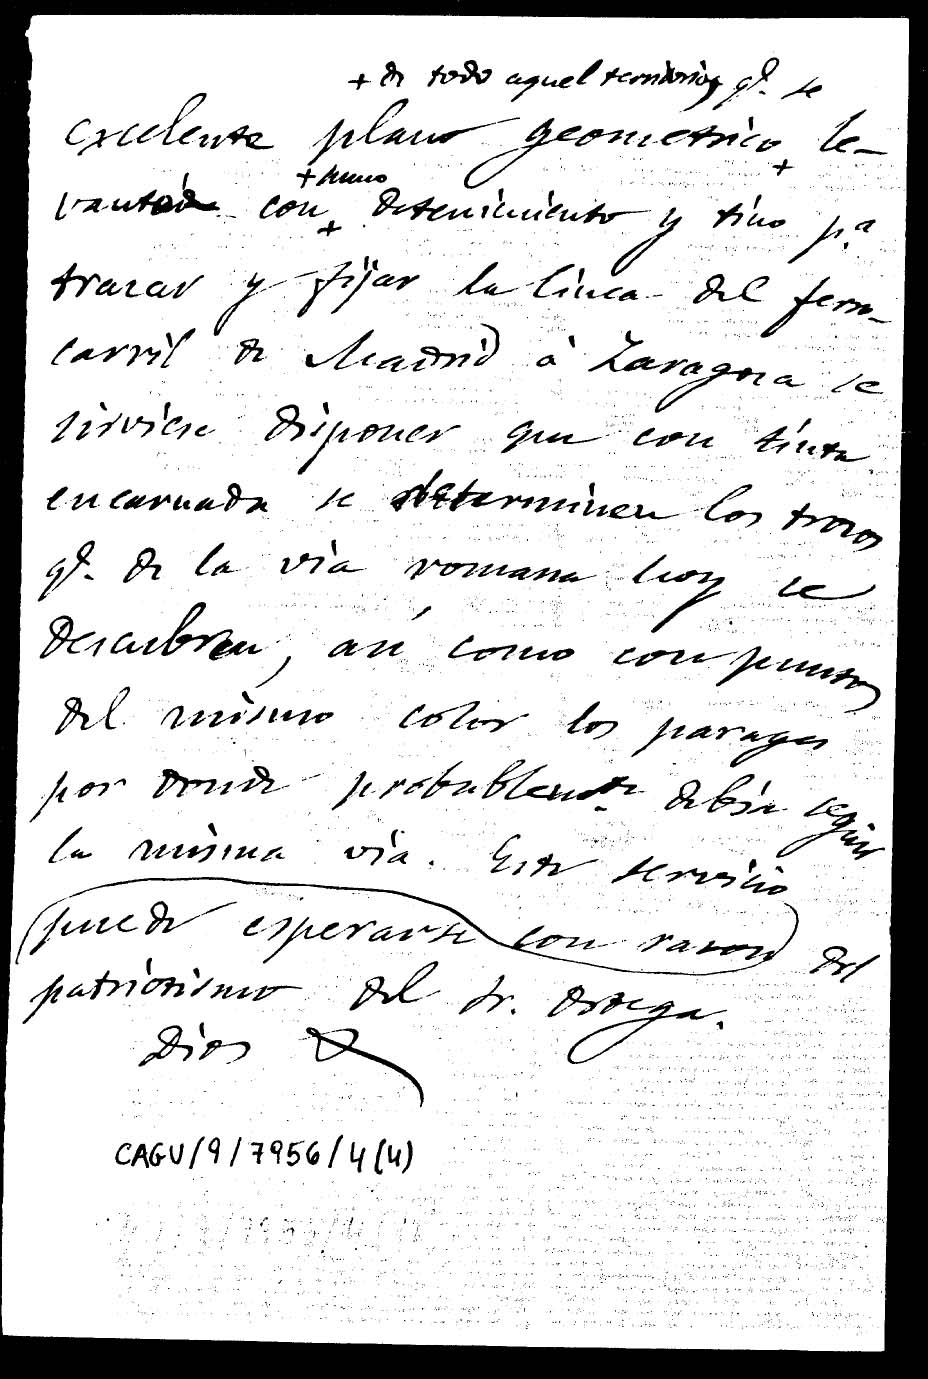 + de todo aquel territorio, qe. se
excelente plano geometrico + le-
+ sumo
vantó con + detenimiento y tino pa.
trazar y fijar la linea del ferro-
carril de Madrid à Zaragoza se
sirviese disponer que con tinta
encarnada se determinen los trozos
qe. de la via romana hoy se
descubren, así como con puntos
del mismo color los parages
por donde probablemte. debia seguir
la misma via. Este servicio
puede esperarse con razon del
patriotismo del Sr. Ortega.
Dios &
CAGU/9/7956/4(4)